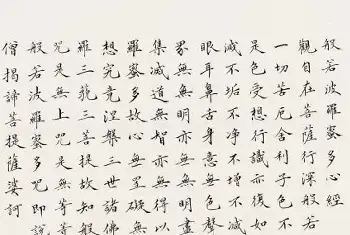 般若波羅蜜多心經
觀自在菩薩行深般若
一切苦厄舍利子色不
是色受想行識亦復如
滅不垢不淨不增不減
眼耳鼻舌身意無色聲
界無無明亦無無明盡
集滅道無智亦無得以
羅蜜多故心無罣礙無
想究竟涅槃三世諸佛
羅三藐三菩提故知般
咒是無上咒是無等等
般若波羅蜜多咒即說
僧揭諦菩提薩婆訶